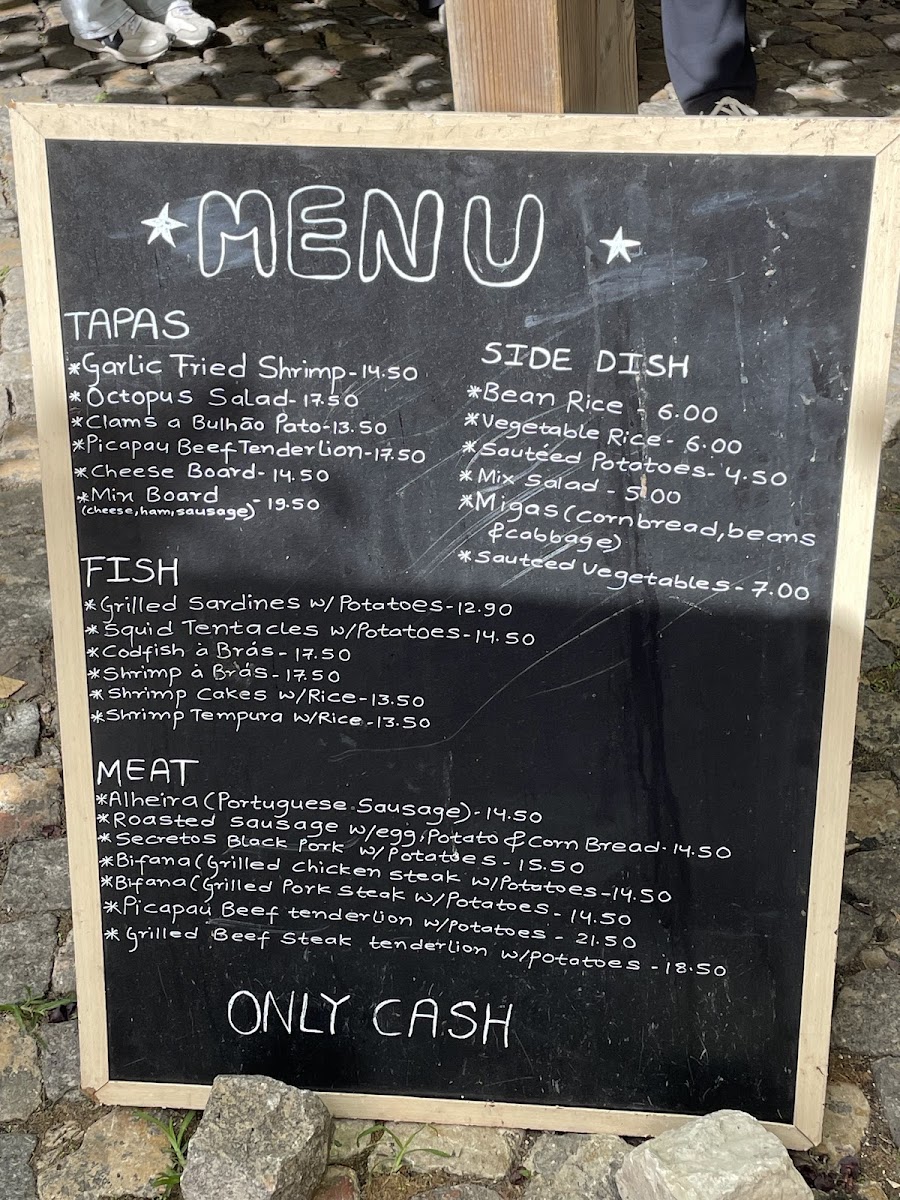 MENU
TAPAS
*Garlic Fried Shrimp-14.50
*Octopus Salad-17.50
*Clams a Bulhão Pato-13.50
*Picapau Beef Tenderlion-17.50
*Cheese Board-14.50
*Mix Board -19.50
(cheese,ham,sausage)
SIDE DISH
*Bean Rice - 6.00
*Vegetable Rice - 6.00
*Sautéed Potatoes- 4.50
*Mix Salad - 5.00
*Migas(cornbread,beans
&cabbage)
*Sauteed Vegetables-7.00
FISH
*Grilled Sardines w/Potatoes-12.90
*Squid Tentacles w/Potatoes-14.50
*Codfish à Brás-17.50
*Shrimp à Brás-17.50
*Shrimp Cakes w/Rice-13.50
*Shrimp Tempura w/Rice-13.50
MEAT
*Alheira(Portuguese Sausage)-14.50
*Roasted Sausage w/egg,Potato & Corn Bread-14.50
*Secretos Black Pork w/Potatoes-15.50
*Bifana(Grilled Chicken steak w/Potatoes-14.50
*Bifana(Grilled Pork Steak w/Potatoes-14.50
*Picapau Beef tenderlion w/potatoes - 21.50
*Grilled Beef Steak tenderlion w/potatoes -18.50
ONLY CASH